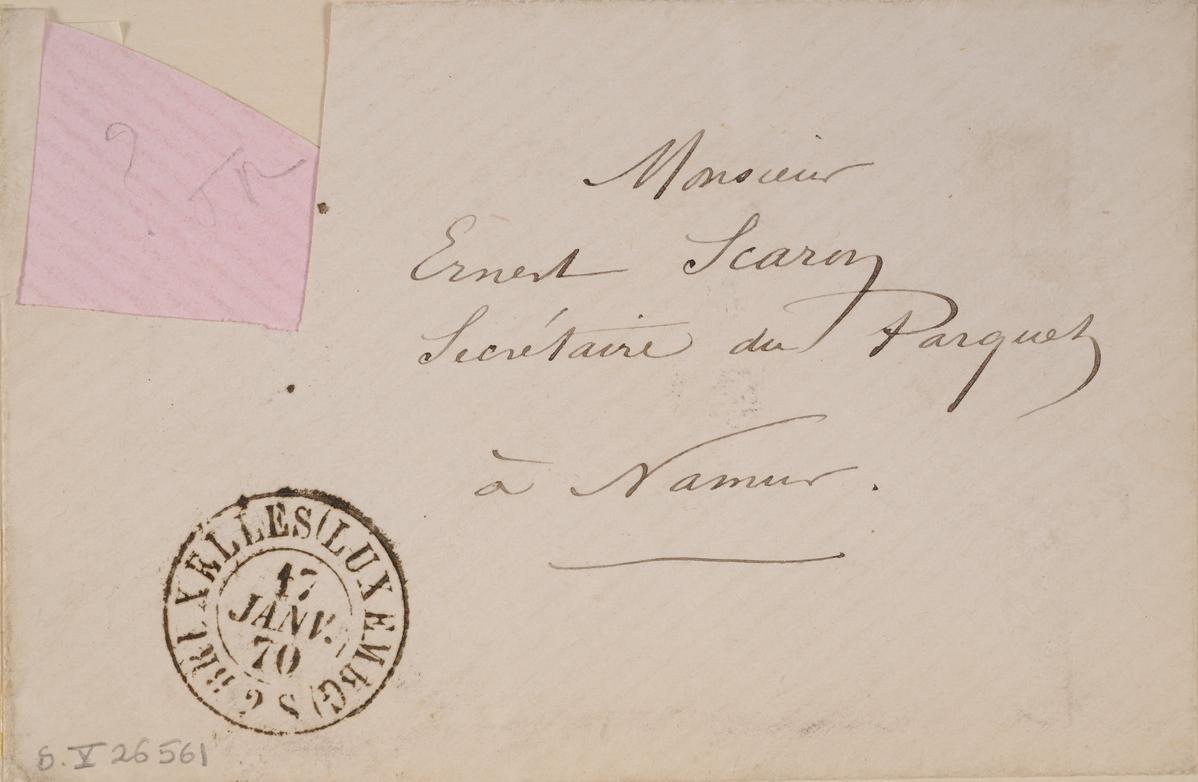 ? JR
Monsieur
Ernest Scaron
Secrétaire du Parquet
à Namur.
BRUXELLES (LUXEMBG)
17
JANV.
70
S.V 26561